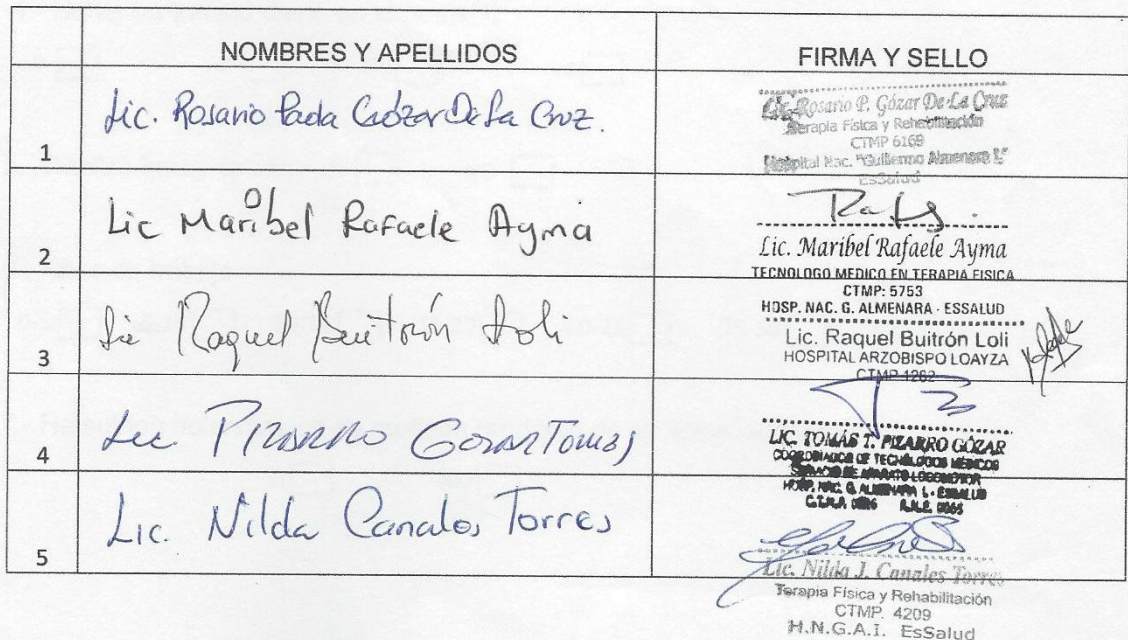 NOMBRES Y APELLIDOS
FIRMA Y SELLO
1
Lic. Rosario Paola Gózar De La Cruz.
Lic. Rosario P. Gózar De La Cruz
Terapia Física y Rehabilitación
CTMP 6169
Hospital Nac. "Guillermo Almenara I."
EsSalud
2
Lic Maribel Rafaele Ayma
Lic. Maribel Rafaele Ayma
TECNOLOGO MEDICO EN TERAPIA FISICA
CTMP: 5753
HOSP. NAC. G. ALMENARA - ESSALUD
3
Lic Raquel Buitrón Loli
Lic. Raquel Buitrón Loli
HOSPITAL ARZOBISPO LOAYZA
CTMP 1262
4
Lic PIZARRO GOZAR Tomas
LIC. TOMÁS T. PIZARRO GÓZAR
COORDINADOR DE TECNÓLOGOS MÉDICOS
SERVICIO DE APARATO LOCOMOTOR
HOSP. NAC. G. ALMENARA I. - ESSALUD
C.T.M.P. R.N.E.
5
Lic. Nilda Canales Torres
Lic. Nilda J. Canales Torres
Terapia Física y Rehabilitación
CTMP. 4209
H.N.G.A.I. EsSalud